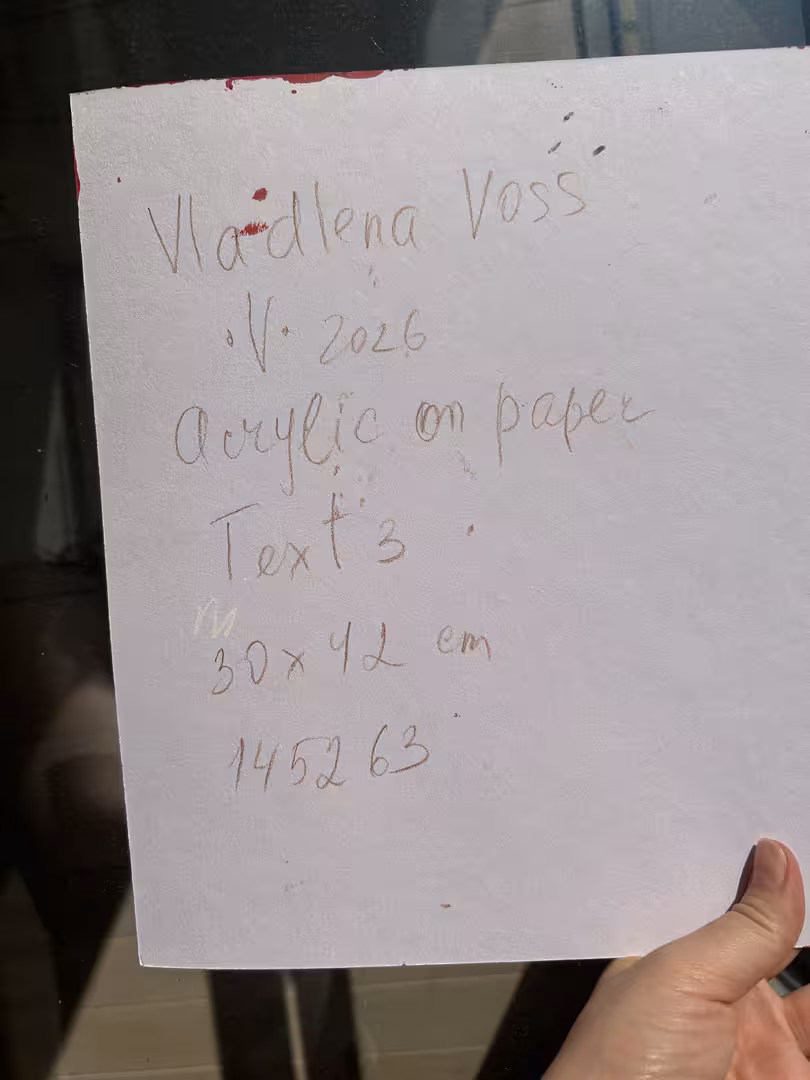 Vladlena Voss
.V. 2026
Acrylic on paper
Text 3
30x42 cm
145263